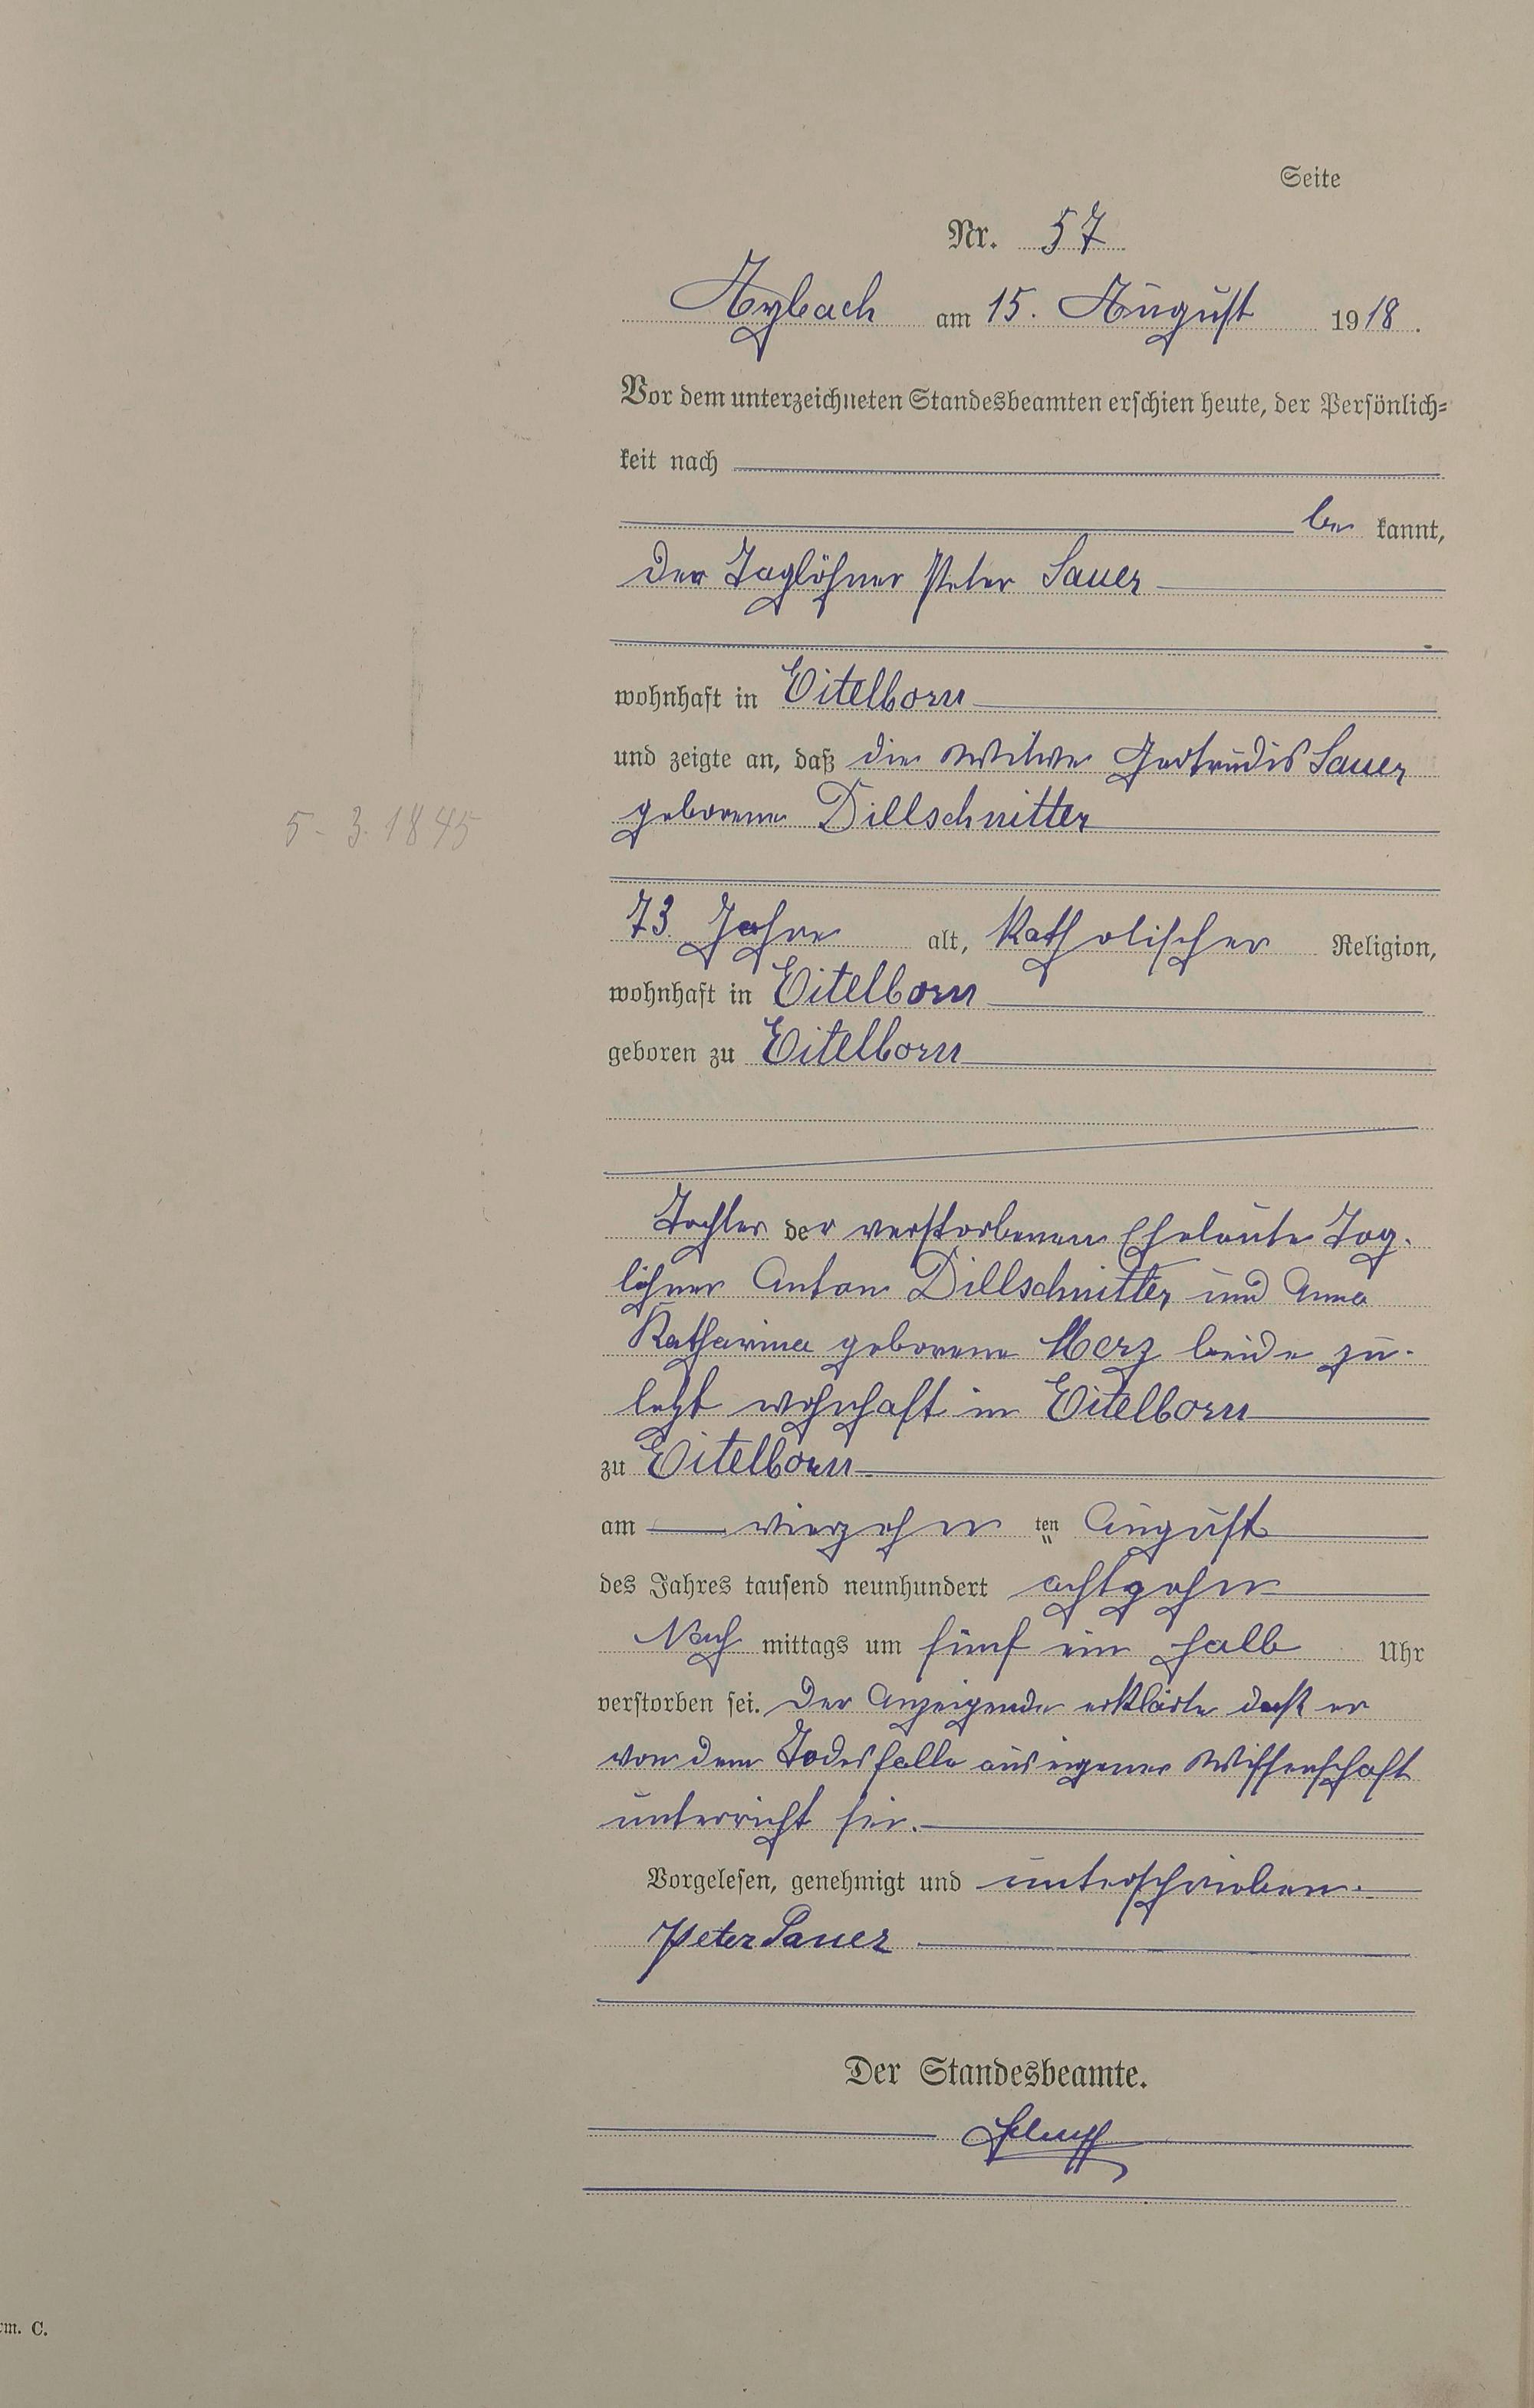 Seite
Nr. 57
Arzbach am 15. August 1918.
Vor dem unterzeichneten Standesbeamten erschien heute, der Persönlich=
keit nach
be kannt,
der Taglöhner Peter Sauer
wohnhaft in Eitelborn
und zeigte an, daß die Witwe Gertrudis Sauer
geborene Dillschnitter
5. 3. 1845
73 Jahre alt, katholischer Religion,
wohnhaft in Eitelborn
geboren zu Eitelborn
Tochter der verstorbenen Eheleute Tag-
löhner Anton Dillschnitter und Anna
Katharina geborene Merz beide zu-
letzt wohnhaft in Eitelborn
zu Eitelborn
am vierzehn ten August
des Jahres tausend neunhundert achtzehn
Nach mittags um fünf ein halb Uhr
verstorben sei. Der Anzeigende erklärte daß er
von dem Todesfalle aus eigener Wissenschaft
unterricht sei.
Vorgelesen, genehmigt und unterschrieben.
Peter Sauer
Der Standesbeamte.
rm. C.